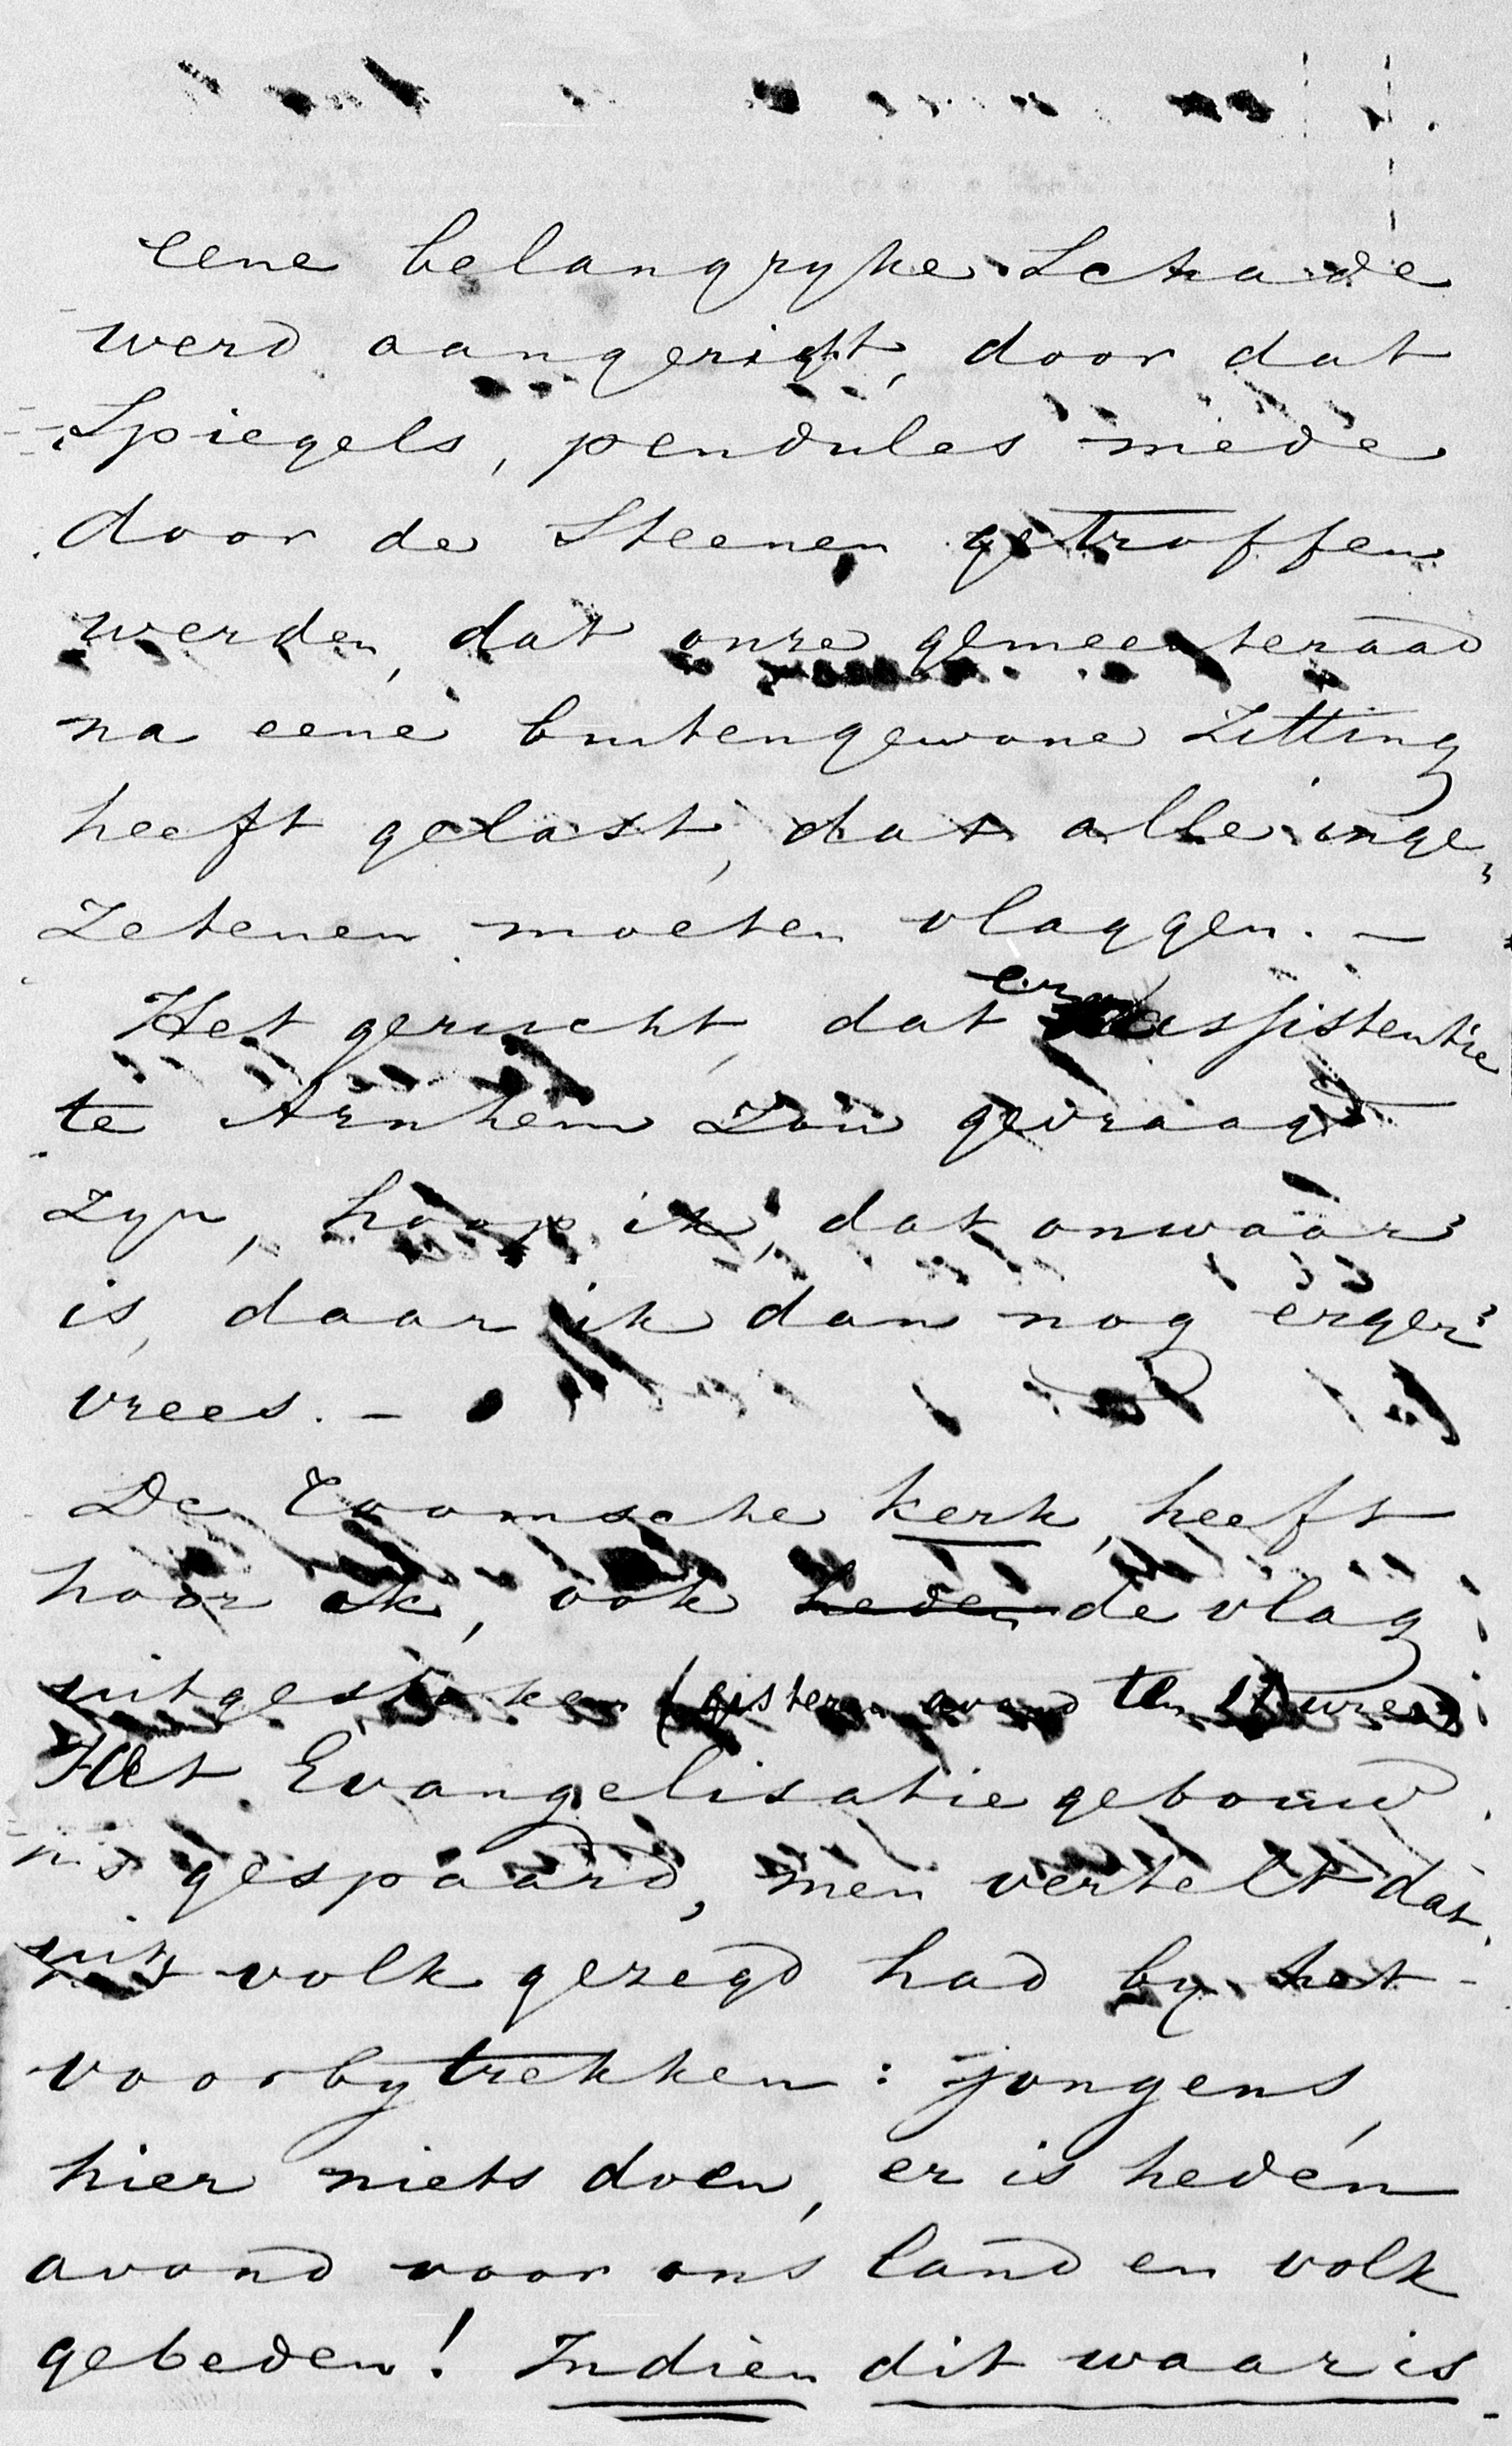 eene belangryke Schade
werd aangerigt, door dat
Spiegels, pendules mede
door de Steenen getroffen
werden, dat onze gemeenteraad
na eene buitengewone Zitting
heeft gelast, dat alle inge-
Zetenen moeten vlaggen. -
Het gerucht, dat er assistentie
te Arnhem Zou gevraagd
Zyn, hoop ik, dat onwaar
is, daar ik dan nog erger
vrees. -
De Roomsche kerk, heeft
hoor ik, ook heden de vlag
uitgestoken (gisteren avond ten 11 ure)
Het Evangelisatie gebouw
is gespaard, men vertelt dat
volk gezegd had by het
voorbytrekken: jongens,
hier niets doen, er is heden
avond voor ons land en volk
gebeden! Indien dit waar is